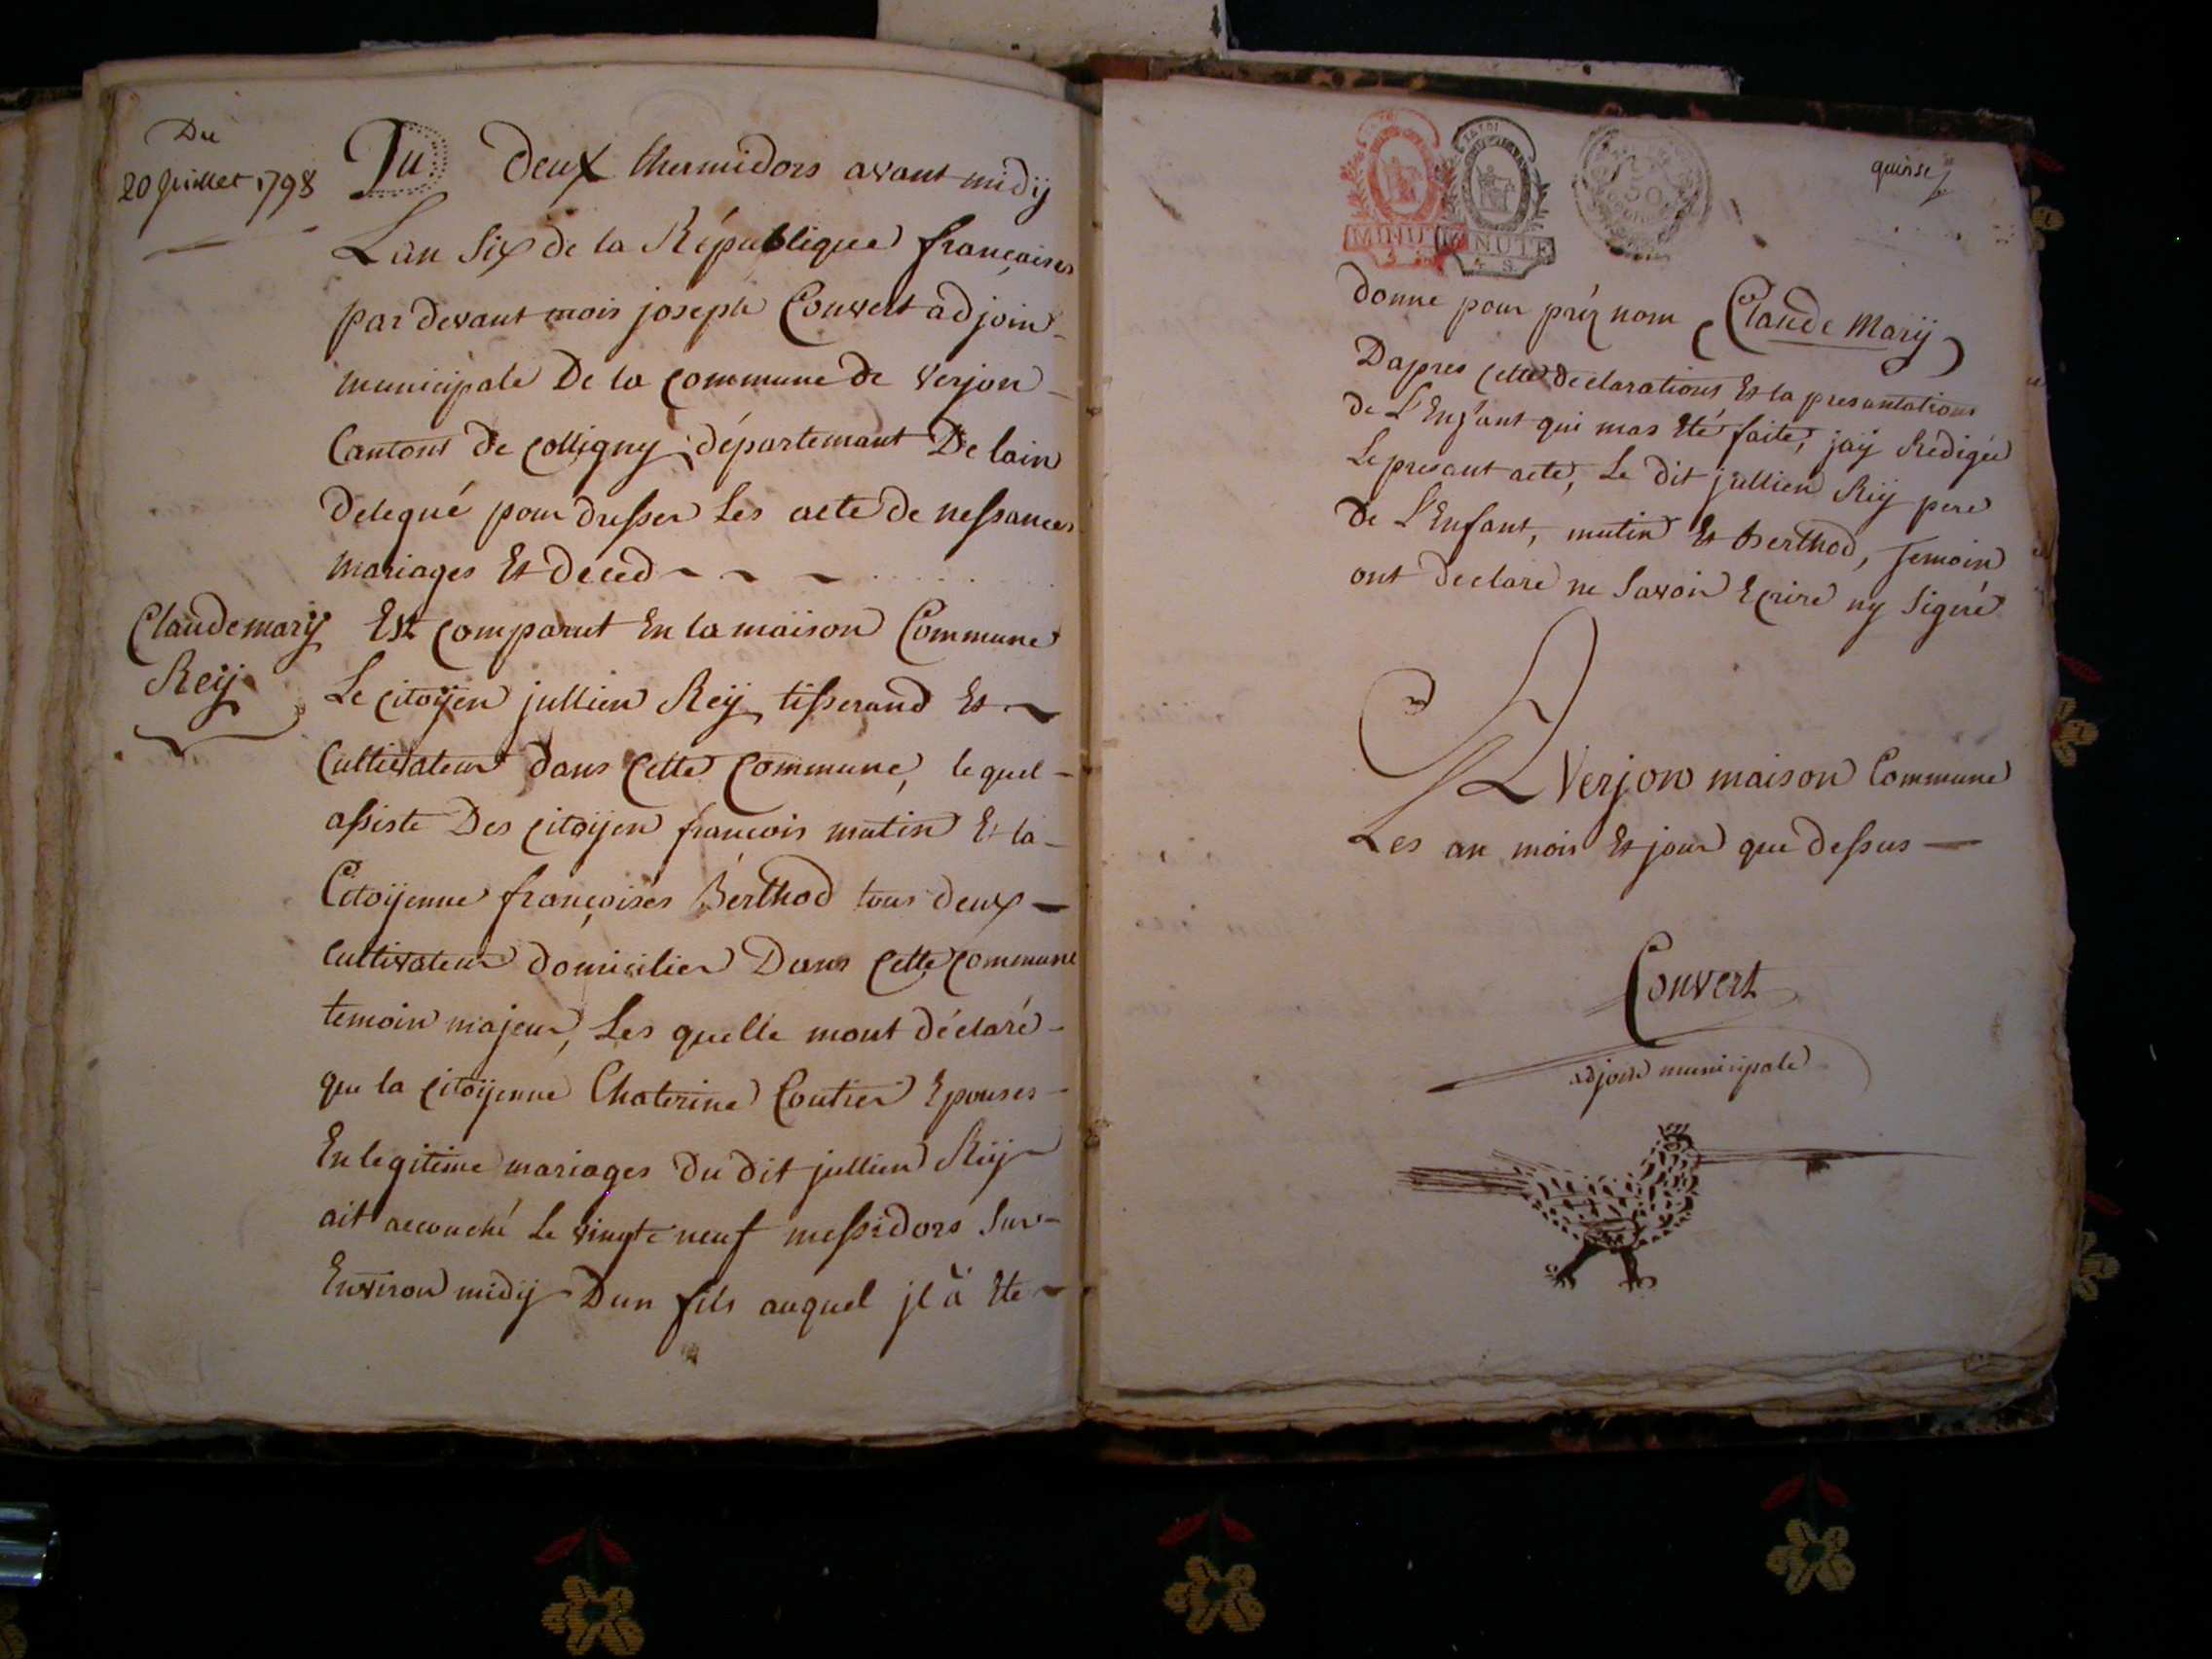 Du
20 Juillet 1798
Du deux thermidors avant midÿ
Lan Six de la République françaises
par devant mois joseph Convert adjoin
municipale De la Commune de Verjon
Cantons de Colligny département De lain
delegué pour dresser Les acte de nessances
mariages Et deced
Claude marÿ
Reÿ
Est Comparut En la maison Commune
Le Citoÿen jullien Reÿ tisserand Et
Cultivateur dans Cette Commune, lequel
assiste Des Citoÿen francois mutin Et la
Citoÿenne françoises Berthod tous deux
Cultivateur domicilier Dans Cette Commune
temoin majeur, Les quelle mont déclaré
que la Citoÿenne Chaterine Coutier Epouses
En legitime mariages du dit jullien Reÿ
ait accouché Le vingte neuf messidors Sur
Environ midÿ Dun fils auquel jl à Ete
MINUTE
4 S
MINUTE
4 S.
50
quinse
donne pour préz nom Claude Marÿ
Dapres Cette declarations Et la presantations
de L'Enfant qui mas Eté faite, jaÿ Redigée
Le presant acte, Le dit jullien Reÿ pere
de L'Enfant, mutin Et Berthod, Temoin
ont declare ne Savoir Ecrire ny Signé
A Verjon maison Commune
Les an mois Et jour que dessus
Convert
adjoin municipale